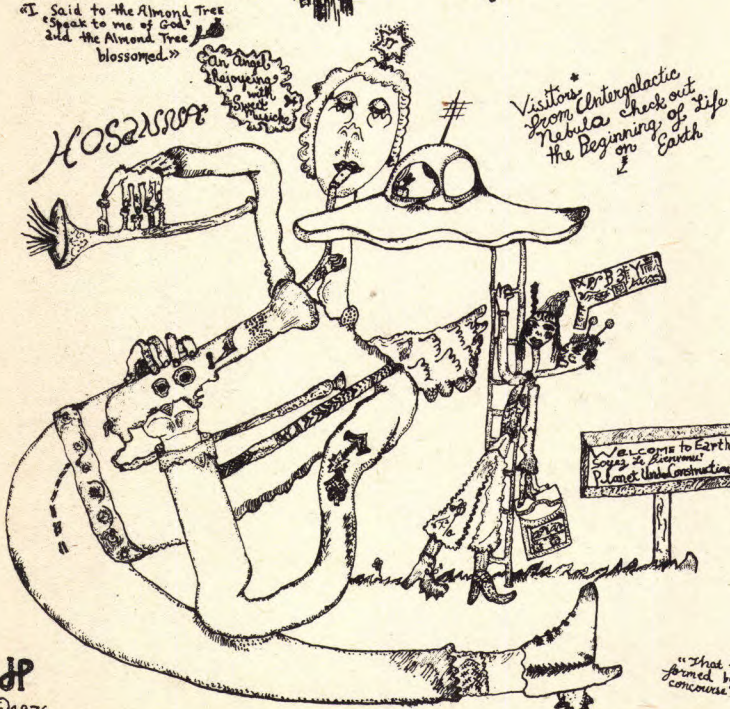 «I Said to the Almond Tree
'Speak to me of God'
and the Almond Tree
blossomed.»
An Angel
Rejoyceing
with
Sweet
Musick
HOSANNA
Visitors
from Untergalactic
Nebula check out
the Beginning of Life
on Earth
WELCOME to Earth
Planet UndaConstruction
"That
formed b
concourse"
JP